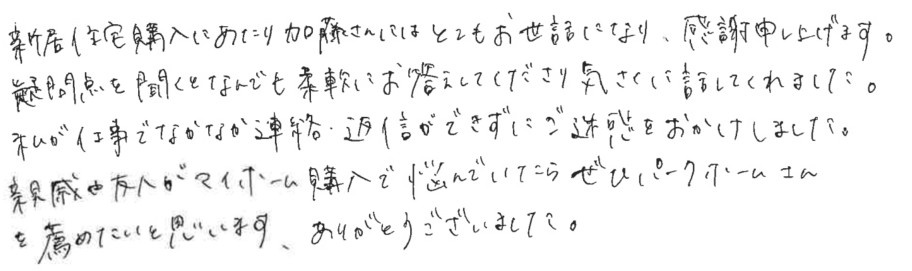 新居住宅購入にあたり加藤さんにはとてもお世話になり、感謝申し上げます。
疑問点を聞くとなんでも柔軟にお答えしてくださり気さくに話してくれました。
私が仕事でなかなか連絡・返信ができずにご迷惑をおかけしました。
親戚や友人がマイホーム購入で悩んでいたらぜひパークホームさん
を薦めたいと思います、ありがとうございました。